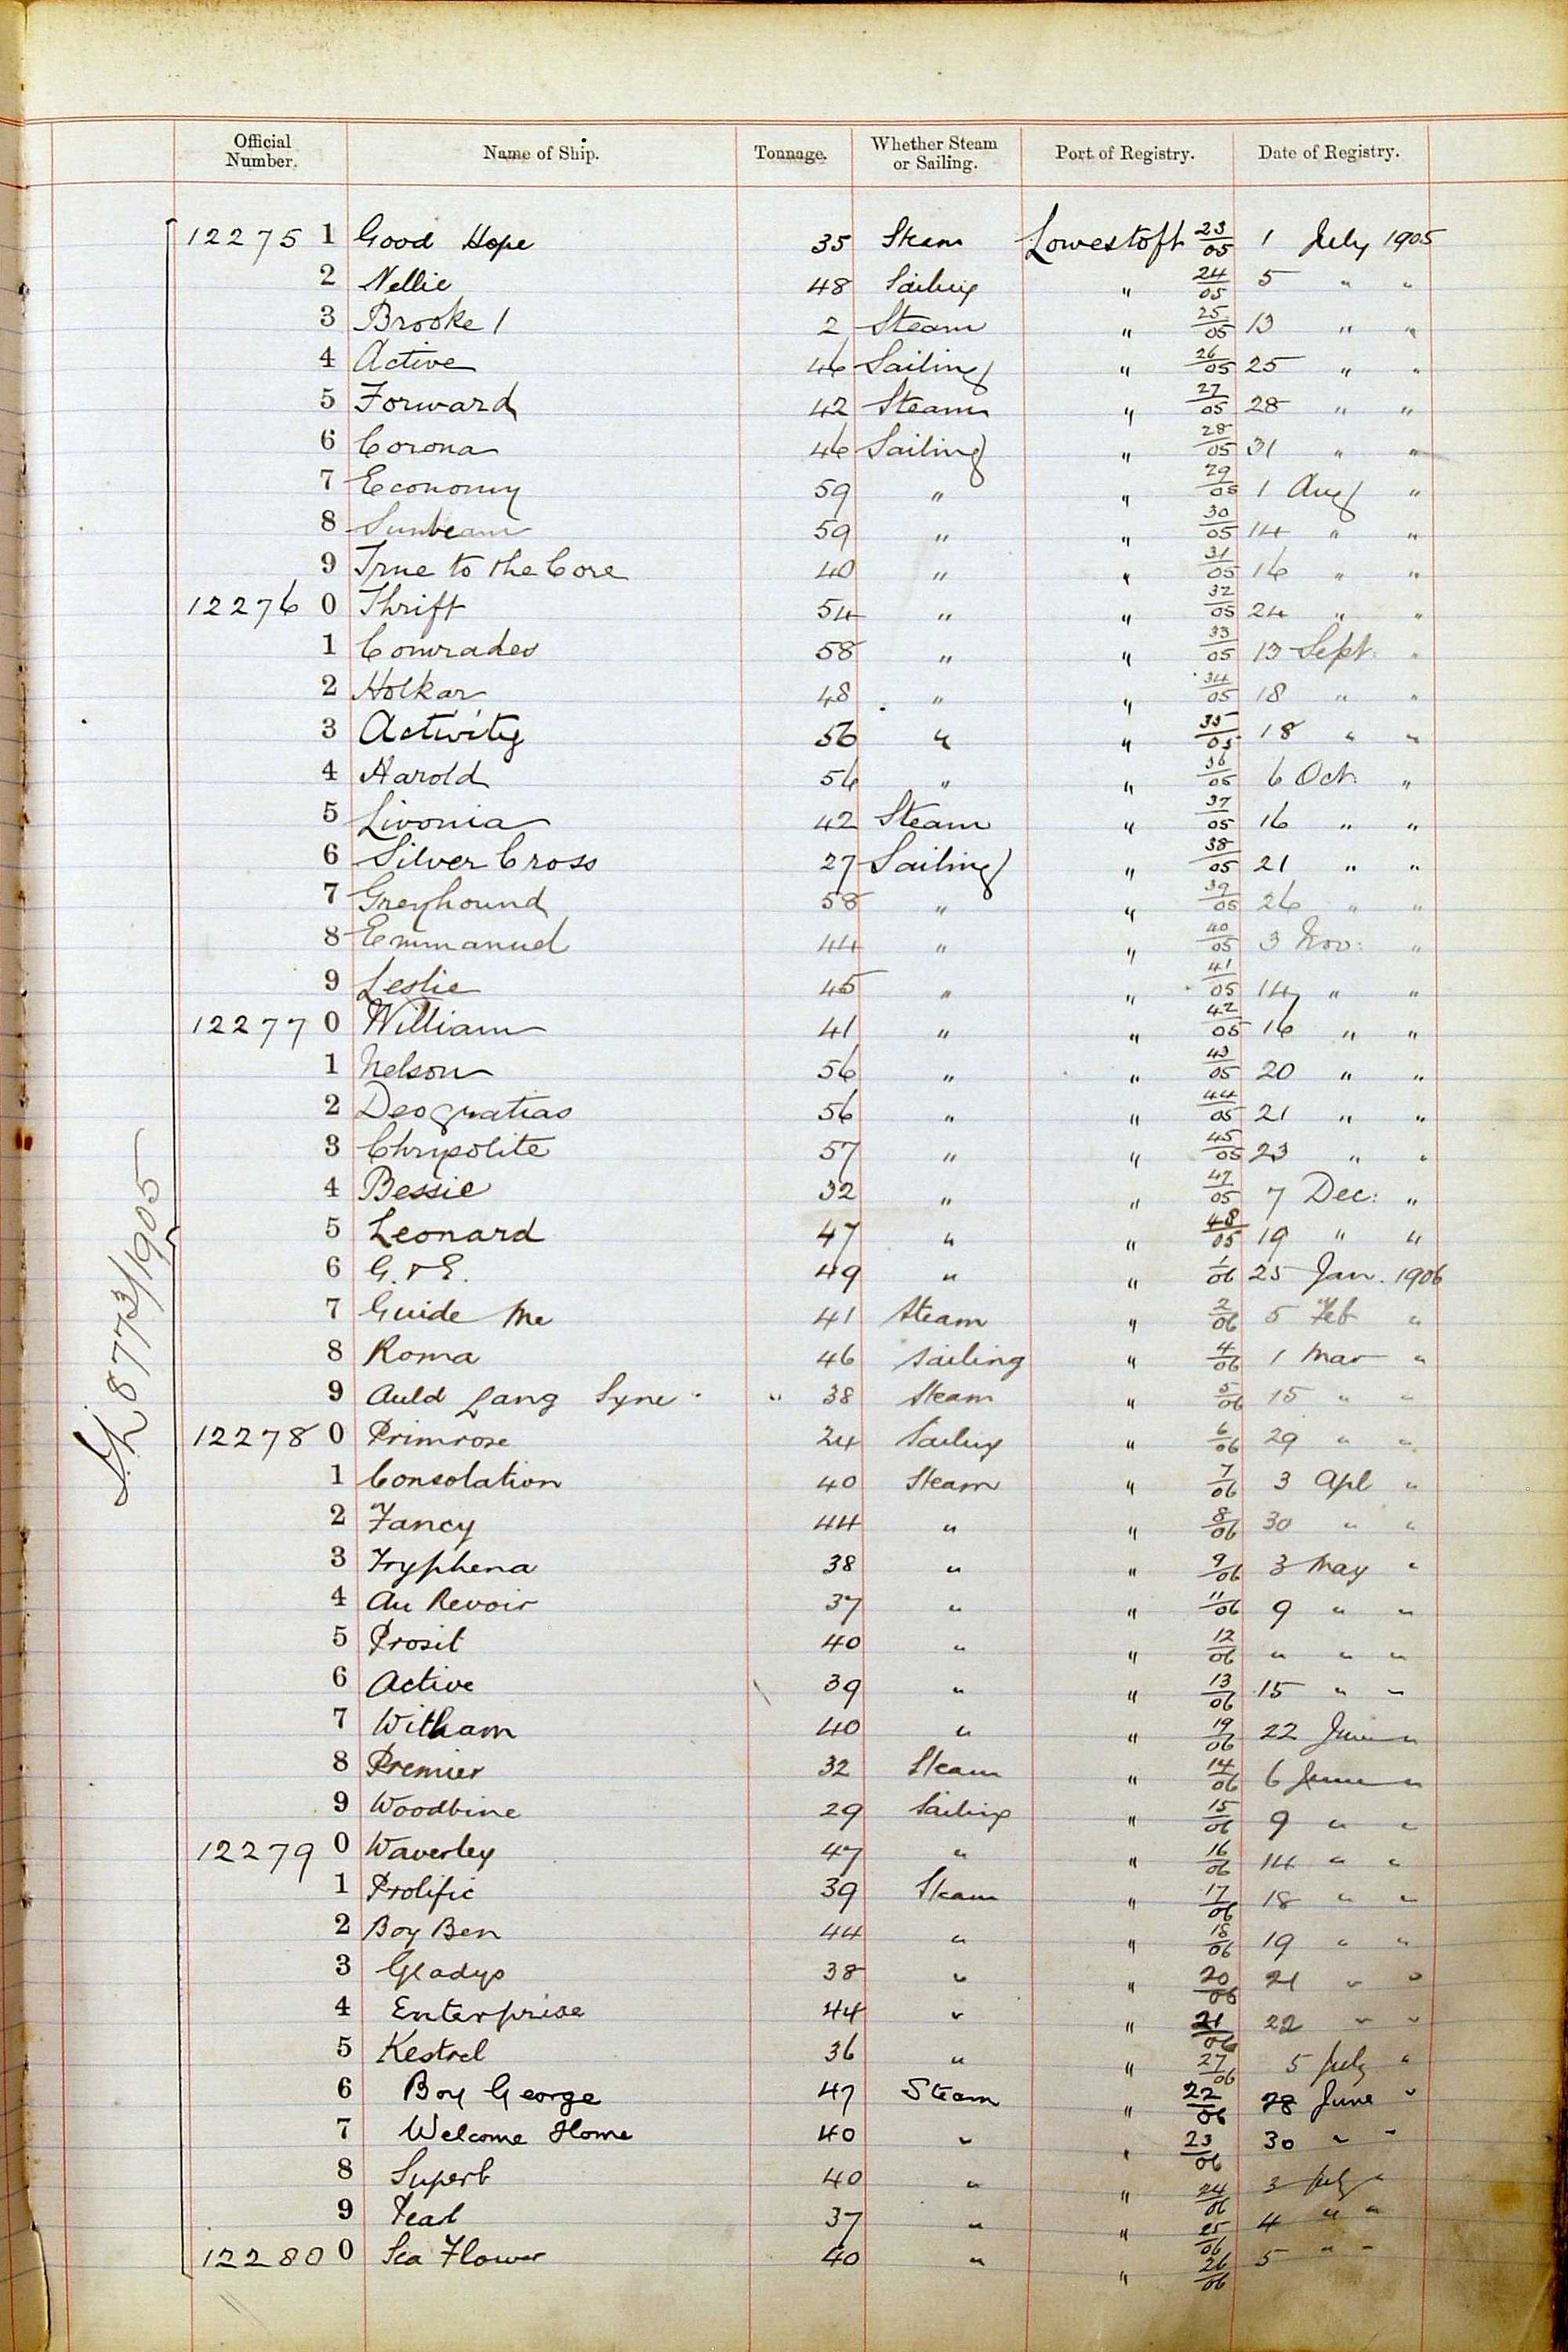 Official Number. Name of Ship. Tonnage. Whether Steam or Sailing. Port of Registry. Date of Registry.
12275 1 Good Hope 35 Steam Lowestoft 23/05 1 July 1905
2 Nellie 48 Sailing " 24/05 5 " "
3 Brooke 1 2 Steam " 25/05 13 " "
4 Active 46 Sailing " 26/05 25 " "
5 Forward 42 Steam " 27/05 28 " "
6 Corona 46 Sailing " 28/05 31 " "
7 Economy 59 " " 29/05 1 Aug "
8 Sunbeam 59 " " 30/05 14 " "
9 True to the Core 40 " " 31/05 16 " "
12276 0 Thrift 54 " " 32/05 24 " "
1 Comrades 58 " " 33/05 13 Sept: "
2 Holkar 48 " " 34/05 18 " "
3 Activity 56 " " 35/05 18 " "
4 Harold 56 " " 36/05 6 Oct: "
5 Livonia 42 Steam " 37/05 16 " "
6 Silver Cross 27 Sailing " 38/05 21 " "
7 Greyhound 58 " " 39/05 26 " "
8 Emmanuel 44 " " 40/05 3 Nov: "
9 Leslie 45 " " 41/05 14 " "
12277 0 William 41 " " 42/05 16 " "
1 Nelson 56 " " 43/05 20 " "
2 Deo gratias 56 " " 44/05 21 " "
3 Chrysolite 57 " " 45/05 23 " "
4 Bessie 32 " " 47/05 7 Dec: "
5 Leonard 47 " " 48/05 19 " "
6 G. & E. 49 " " 1/06 25 Jan. 1906
7 Guide Me 41 Steam " 2/06 5 Feb "
8 Roma 46 Sailing " 4/06 1 Mar "
9 Auld Lang Syne " 38 Steam " 5/06 15 " "
12278 0 Primrose 24 Sailing " 6/06 29 " "
1 Consolation 40 Steam " 7/06 3 Apl "
2 Fancy 44 " " 8/06 30 " "
3 Tryphena 38 " " 9/06 3 May "
4 Au Revoir 37 " " 11/06 9 " "
5 Prosit 40 " " 12/06 " " "
6 Active 39 " " 13/06 15 " "
7 Witham 40 " " 19/06 22 June "
8 Premier 32 Steam " 14/06 6 June "
9 Woodbine 29 Sailing " 15/06 9 " "
12279 0 Waverley 47 " " 16/06 14 " "
1 Prolific 39 Steam " 17/06 18 " "
2 Boy Ben 44 " " 18/06 19 " "
3 Gladys 38 " " 20/06 21 " "
4 Enterprise 44 " " 21/06 22 " "
5 Kestrel 36 " " 27/06 5 July "
6 Boy George 47 Steam " 22/06 28 June "
7 Welcome Home 40 " " 23/06 30 " "
8 Superb 40 " " 24/06 3 July "
9 Pearl 37 " " 25/06 4 " "
12280 0 Sea Flower 40 " " 26/06 5 " "
8773/1905